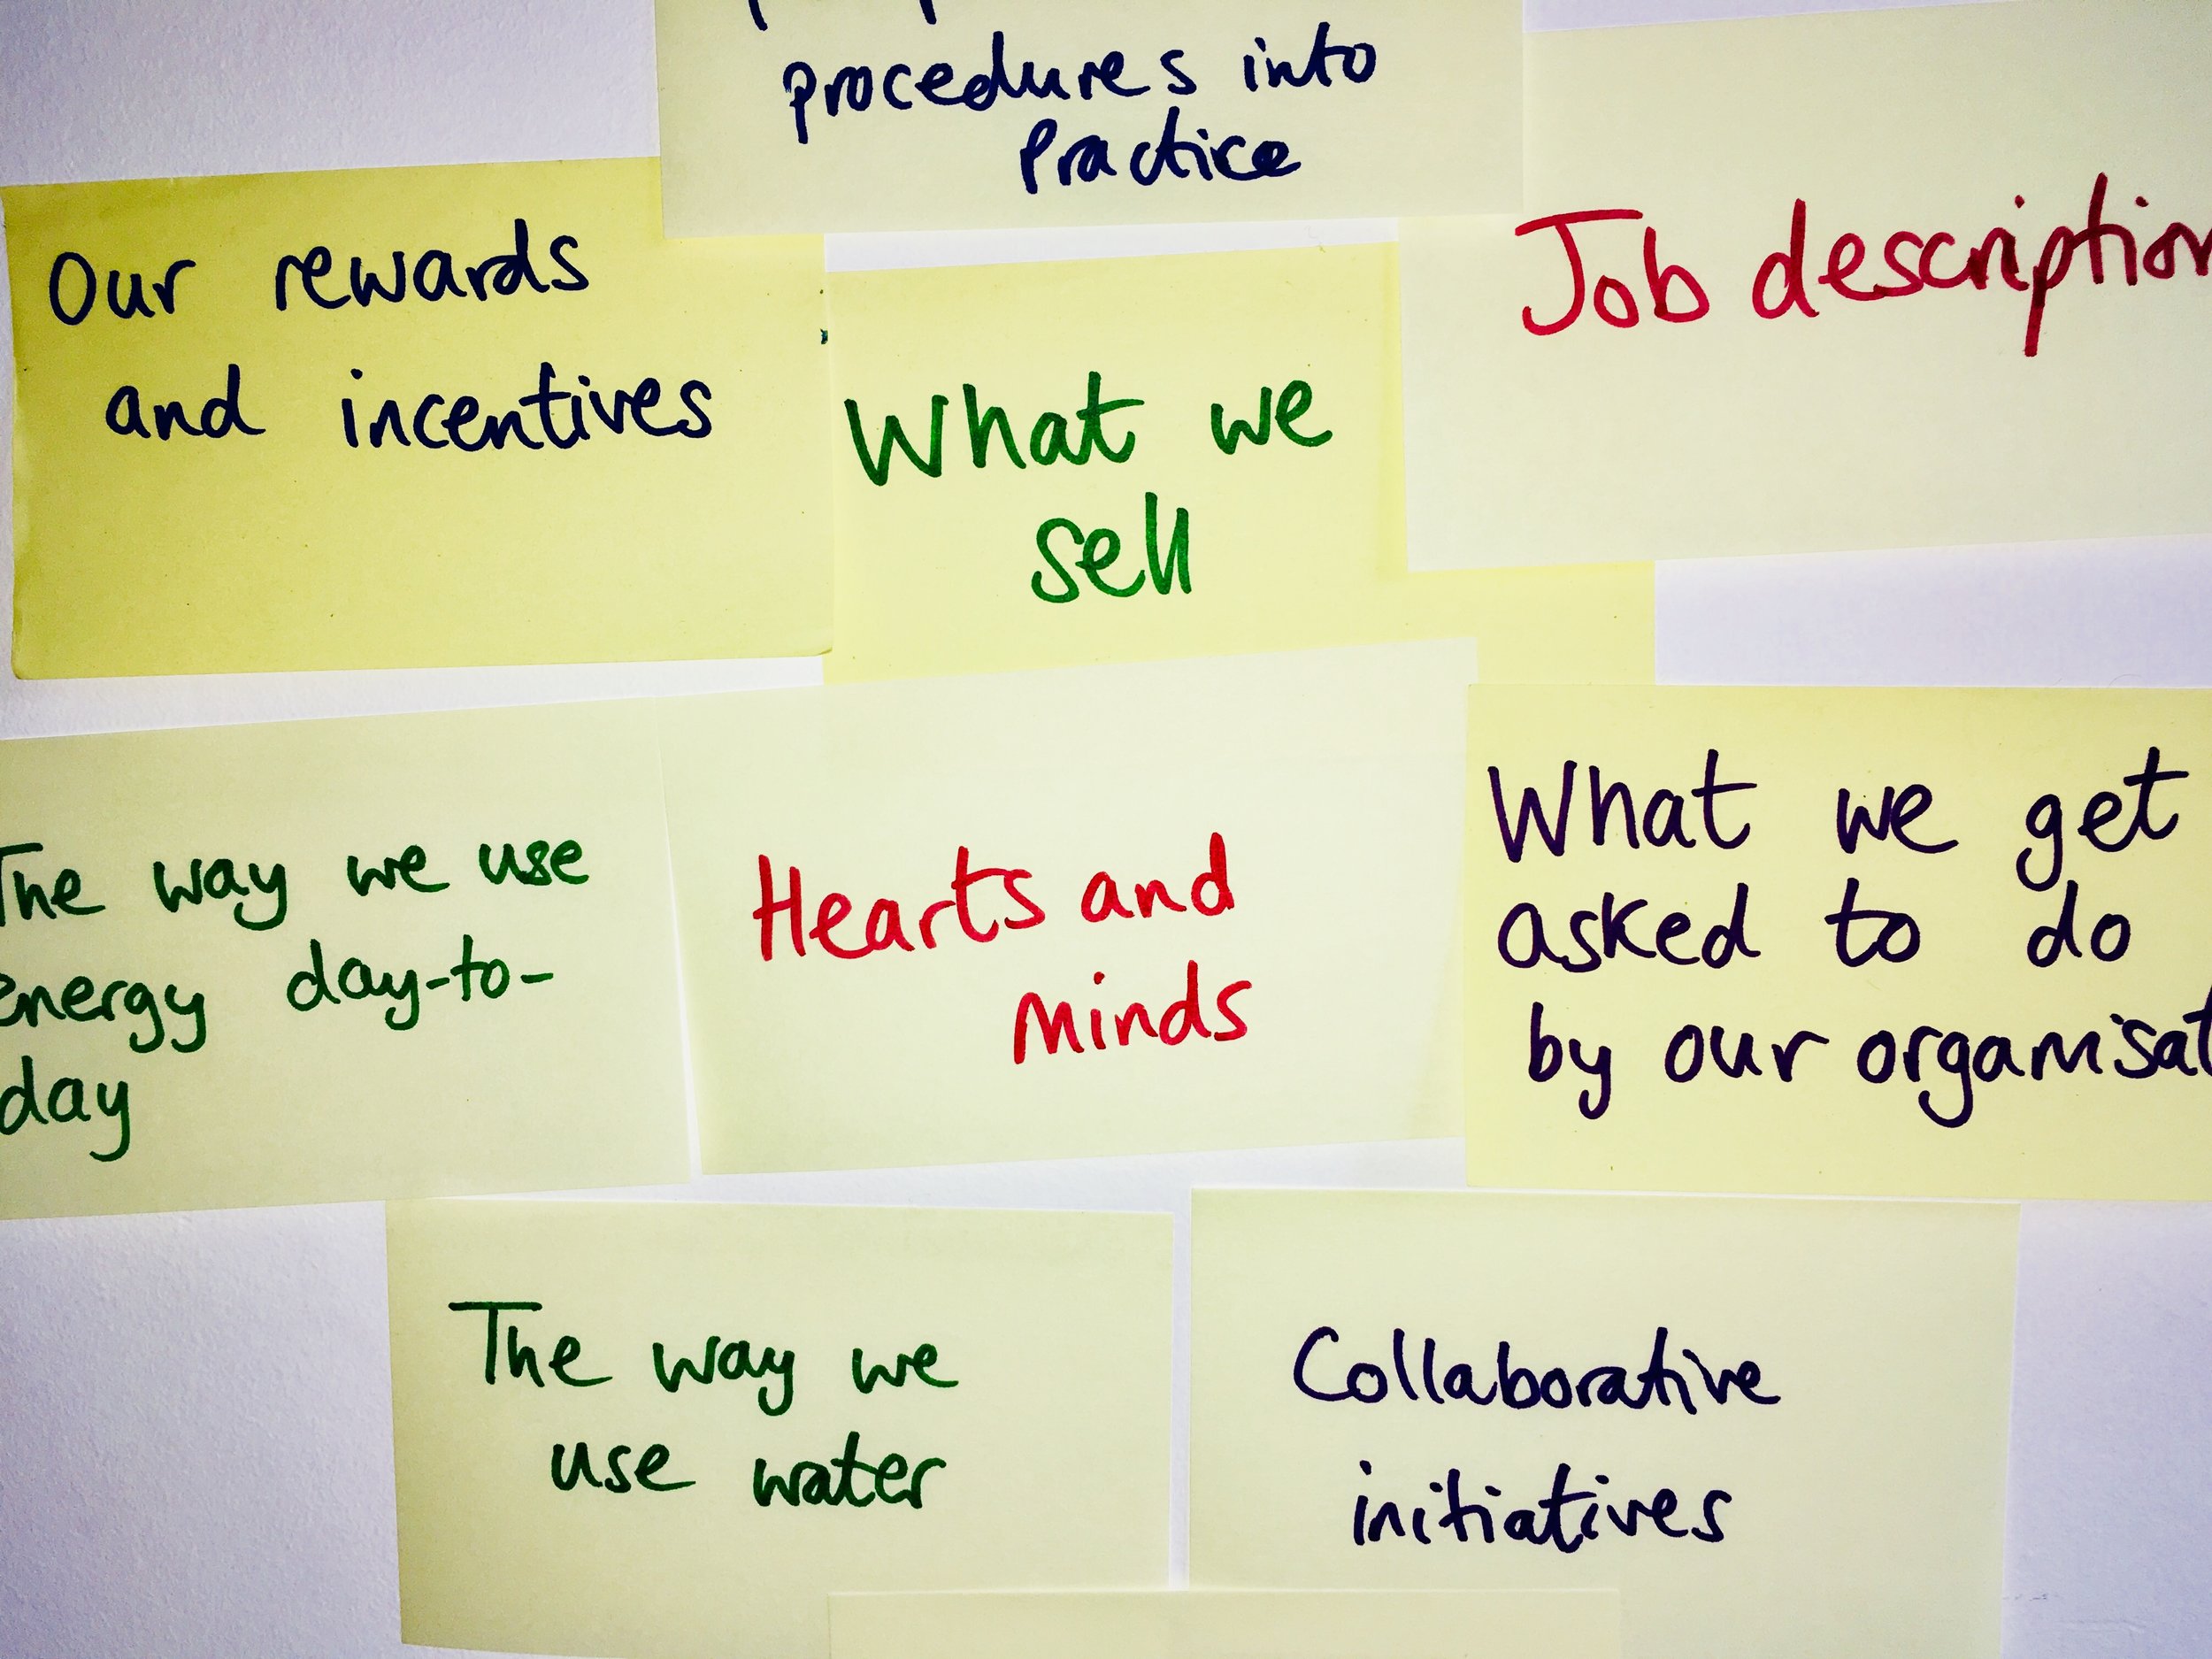 procedures into
Practice
Our rewards
and incentives
What we
sell
Job description
The way we use
energy day-to-
day
Hearts and
minds
What we get
asked to do
by our organisat
The way we
use water
Collaborative
initiatives